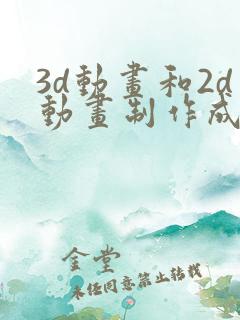 3d動畫和2d
動畫制作成
金堂
未經同意禁止轉載